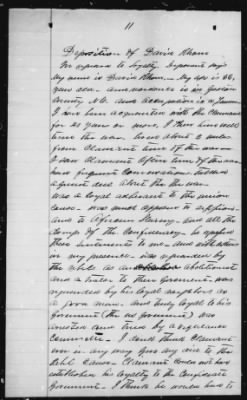 11
Deposition of David Rhom
In answer to Loyalty. Deponent says
My name is David Rhom. My age is 66
years old. and residence is in Gaston
County N.C. and occupation is a Farmer
I have been acquainted with the Claimant
for 25 years or more, I knew him well
during the war. lived about 2 miles
from Claimant time of the war
I saw Claimant often time of the war
had frequent conversations
about the war
was a loyal adherent to the union
cause. was most opposed to secession
and to African Slavery. and all the
doings of the Confederacy. he expressed
these sentiments to me and with others
in my presence. was regarded by
the rebels as an abolitionist
and a traitor to their Government was
regarded by his loyal neighbors as
a good man. and truly loyal to his
Government (the U.S. Government) was
arrested and tried by a vigilance
Committee. I don't think Claimant
ever in any way gave any aid to the
Rebel Cause. Claimant could not have
established his loyalty to the Confederate
Government. I think he would have to